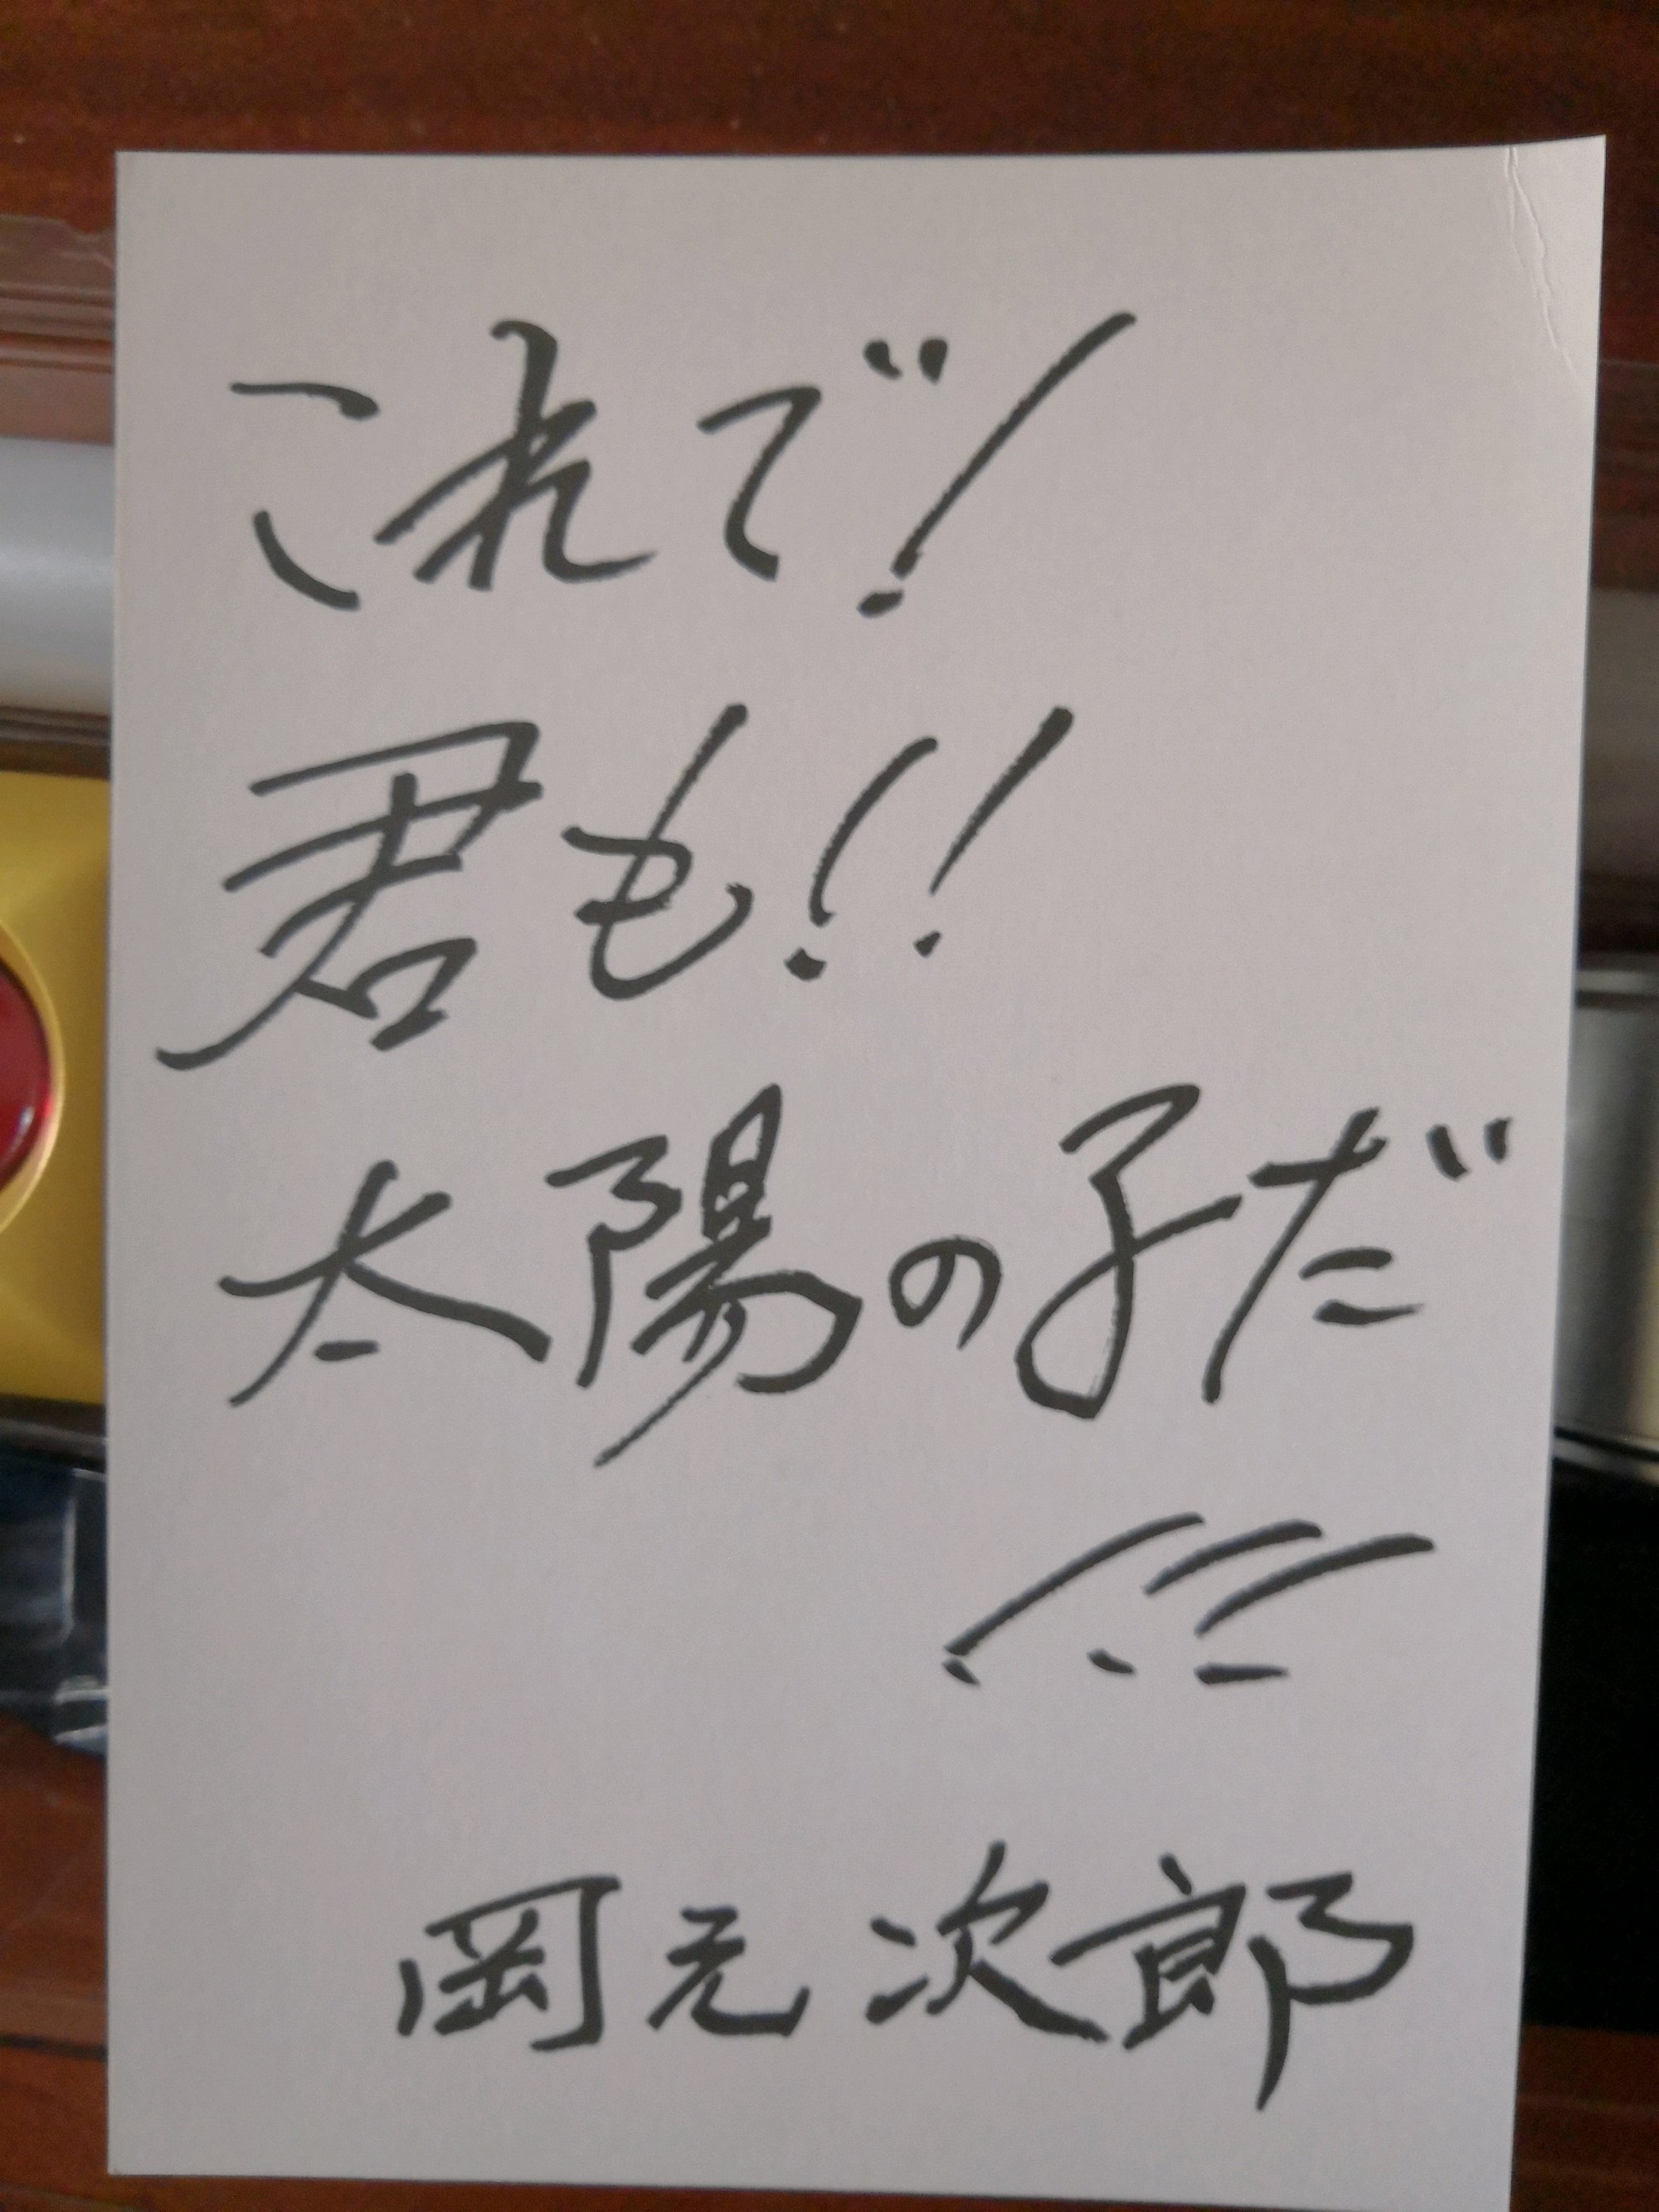 これで！
君も！！
太陽の子だ
！！！
岡元次郎